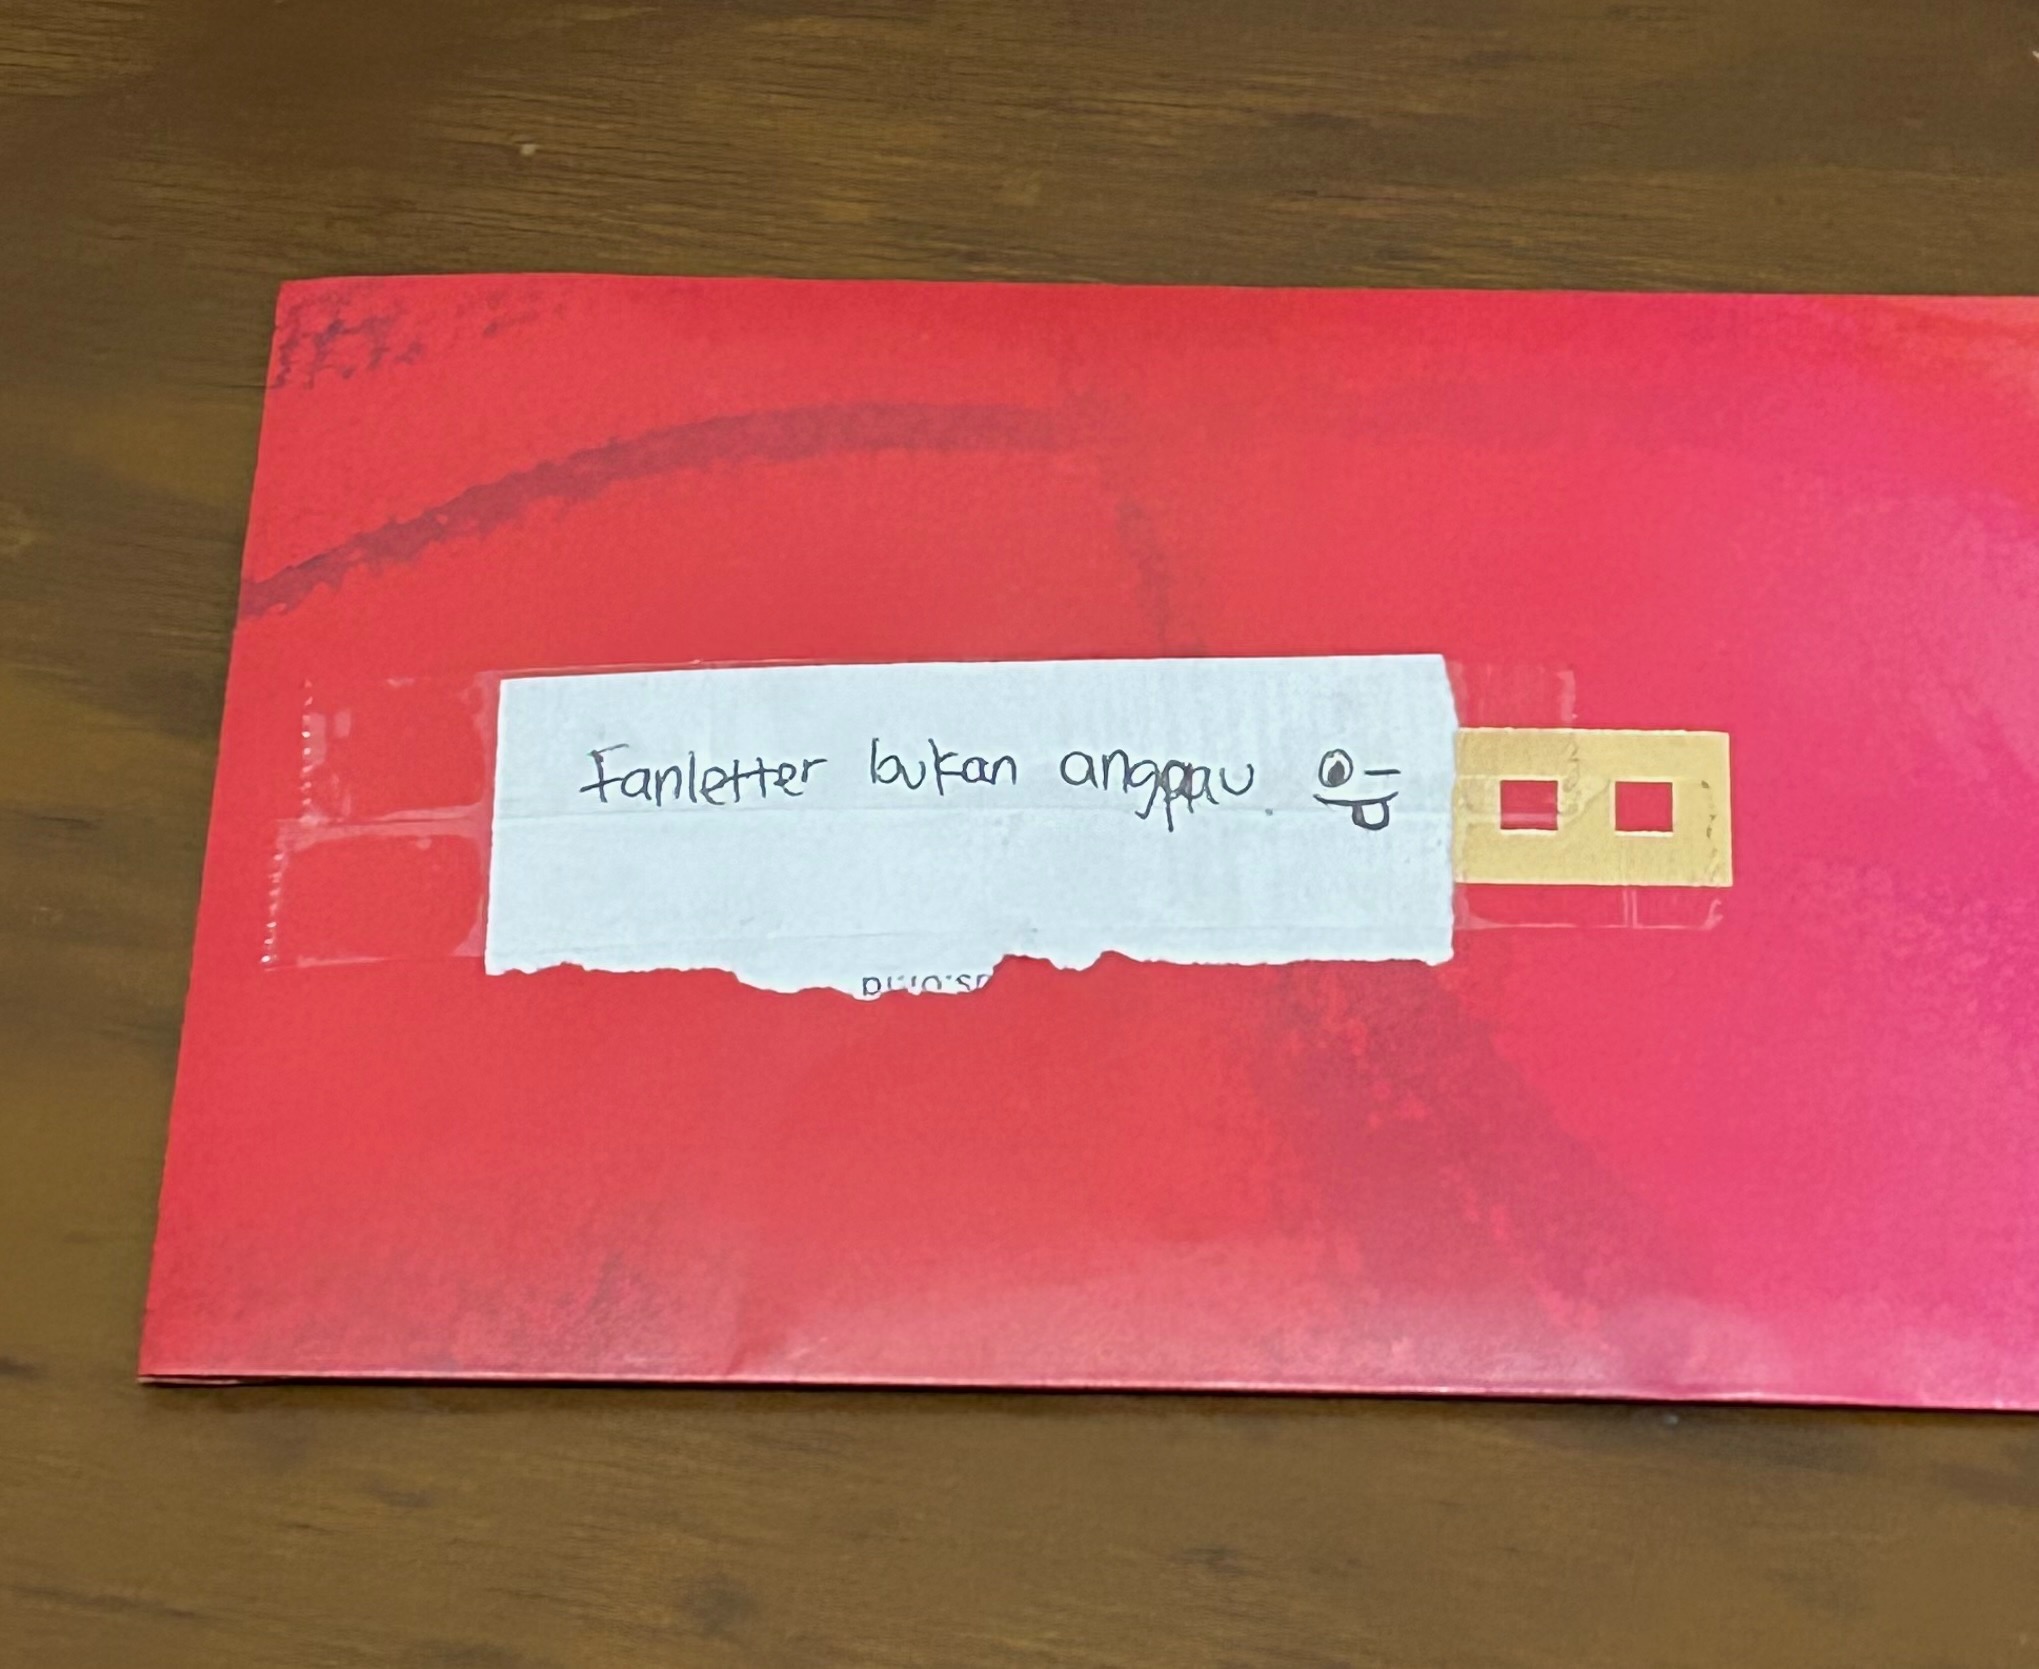 Fanletter bukan angpau